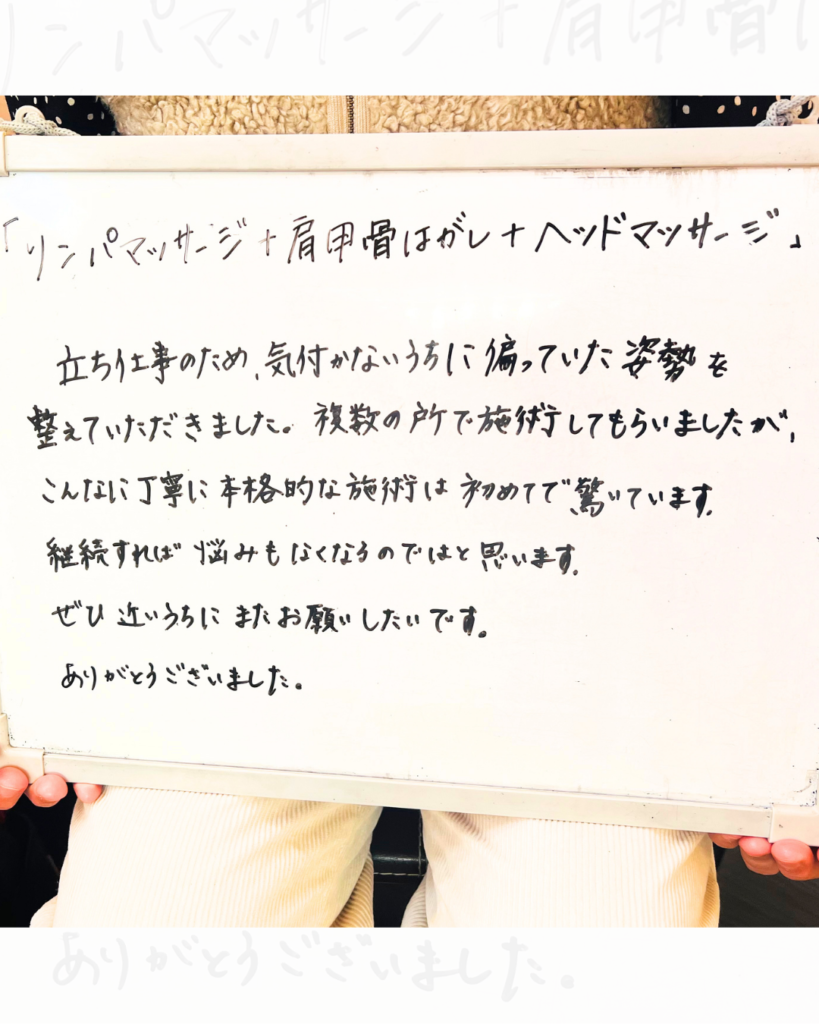 リンパマッサージ+肩甲骨は
「リンパマッサージ+肩甲骨はがし+ヘッドマッサージ」
立ち仕事のため、気付かないうちに偏っていた姿勢を
整えていただきました。複数の所で施術してもらいましたが、
こんなに丁寧に本格的な施術は初めてで驚いています。
継続すれば悩みもなくなるのではと思います。
ぜひ近いうちにまたお願いしたいです。
ありがとうございました。
ありがとうございました。